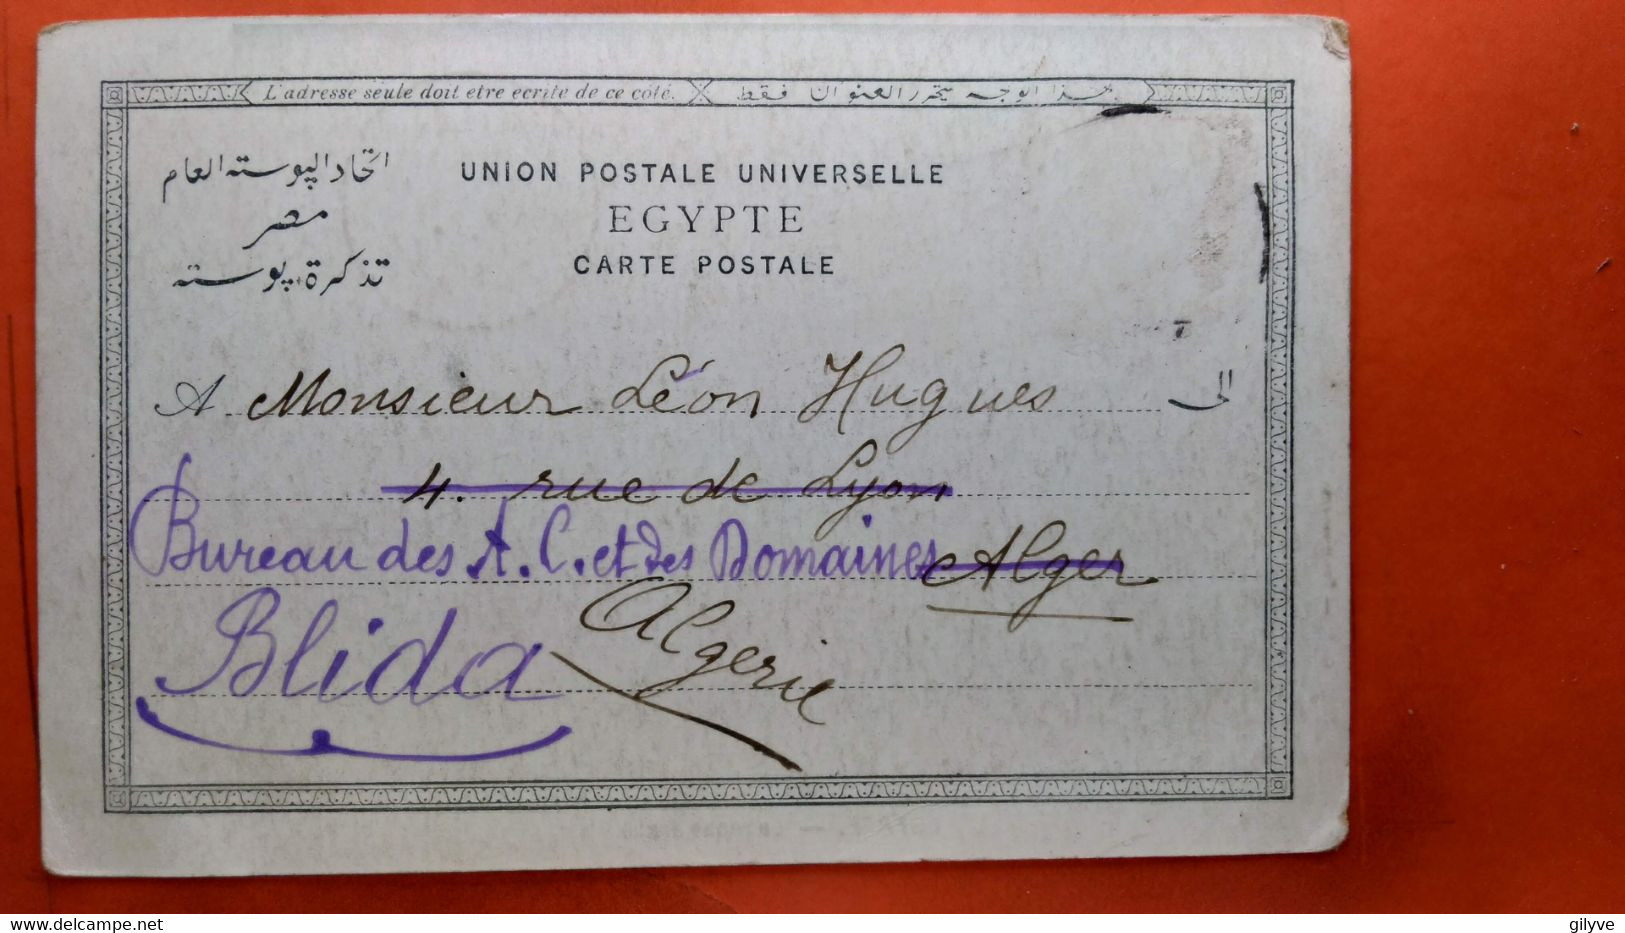 L'adresse seule doit etre ecrite de ce coté. هذا الوجه يحرر العنوان فقط
اتحاد البوسته العام
UNION POSTALE UNIVERSELLE
مصر
EGYPTE
تذكرة بوسته
CARTE POSTALE
A Monsieur Léon Hugues الى
4. rue de Lyon
Bureau des A. C. et des Domaines Alger
Blida Algerie
gilyve